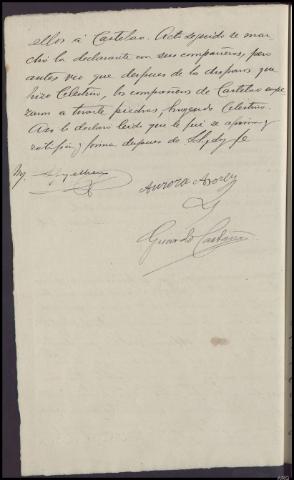 ellos á Castelao. Acto seguido se mar
chó la declarante con sus compañeros, pero
antes vio que despues de los disparos que
hizo Celestino, los compañeros de Castelao empe
zaron a tirarle piedras, huyendo Celestino.
Asi lo declaró leido que le fué se afirmó y
ratificó y firma despues de S. Sª doy fe
Aurora
Gerardo